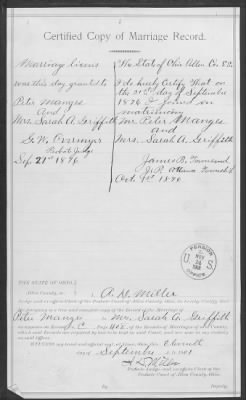 Certified Copy of Marriage Record.
Marriage License
was this day granted to
Peter Manges
And
Mrs. Sarah A. Griffith
G. W. Overmyer
Probate Judge
Sep. 21st 1876
The State of Ohio Allen Co. S.S.
I do hereby Certify That on
the 21st day of September
1876 I joined in
matrimony
Mr Peter Manges
and
Mrs. Sarah A. Griffith
James B. Townsend
J.P. Ottawa Township
Oct 9th 1876
PENSION
OFFICE
U S
NOV
THE STATE OF OHIO,
Allen County, ss
I, A. D. Miller
Judge and ex-officio Clerk of the Probate Court of Allen County, Ohio, do hereby certify that
the foregoing is a true and complete copy of the Record of Marriage of
Peter Manges to Mrs. Sarah A. Griffith
as appears on Record C Page 402 of the Records of Marriages of said County,
and that said Records are required by law to be kept in said Court, and are now in my custody
as my official duty.
WITNESS my hand and official seal, at Lima, Ohio, this Eleventh
day September 1901
A D Miller
Probate Judge, and ex-officio Clerk of the
Probate Court of Allen County, Ohio.
By
Deputy.